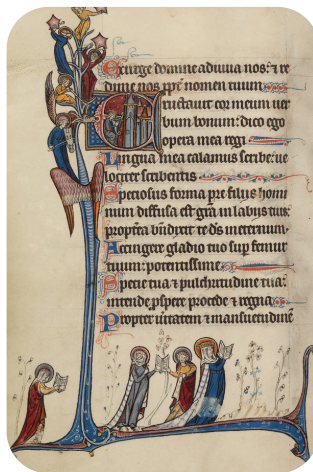 Exurge domine adiuva nos: et re
dime nos ppt nomen tuum
ructavit cor meum ver
bum bonum: dico ego
opera mea regi
Lingua mea calamus scribe: ve
lociter scribentis
Speciosus forma pre filijs homi
num diffusa est gra in labijs tuis:
propterea bndixit te ds in eternum
Accingere gladio tuo sup femur
tuum: potentissime
Specie tua et pulchritudine tua:
intende pspere procede et regna
Propter vitatem et mansuetudinem